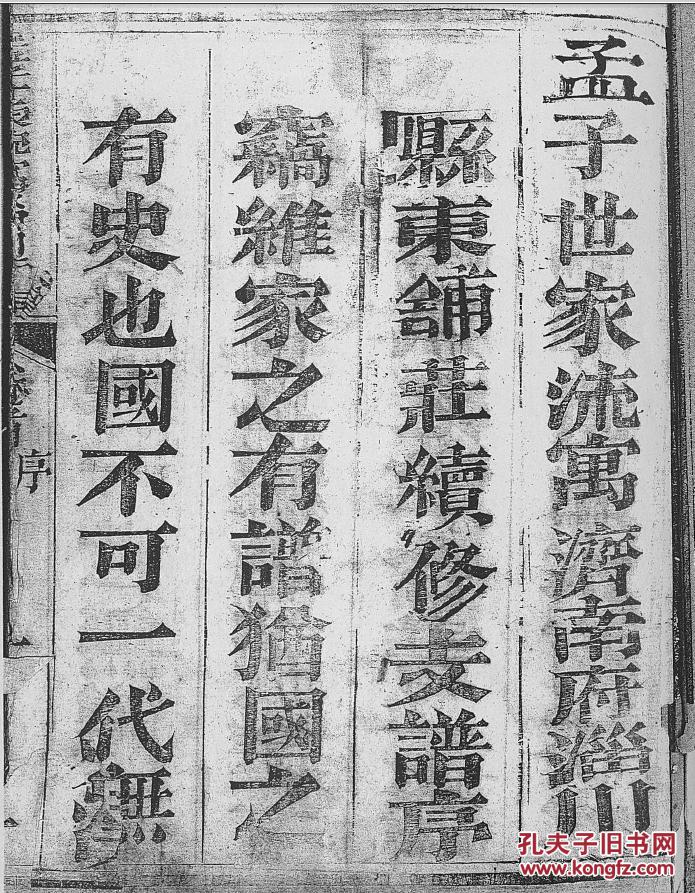 孟子世家流寓濟南府淄川
縣東鋪莊續修支譜序
竊維家之有譜猶國之
有史也國不可一代無
卷首
序
孔夫子旧书网
www.kongfz.com